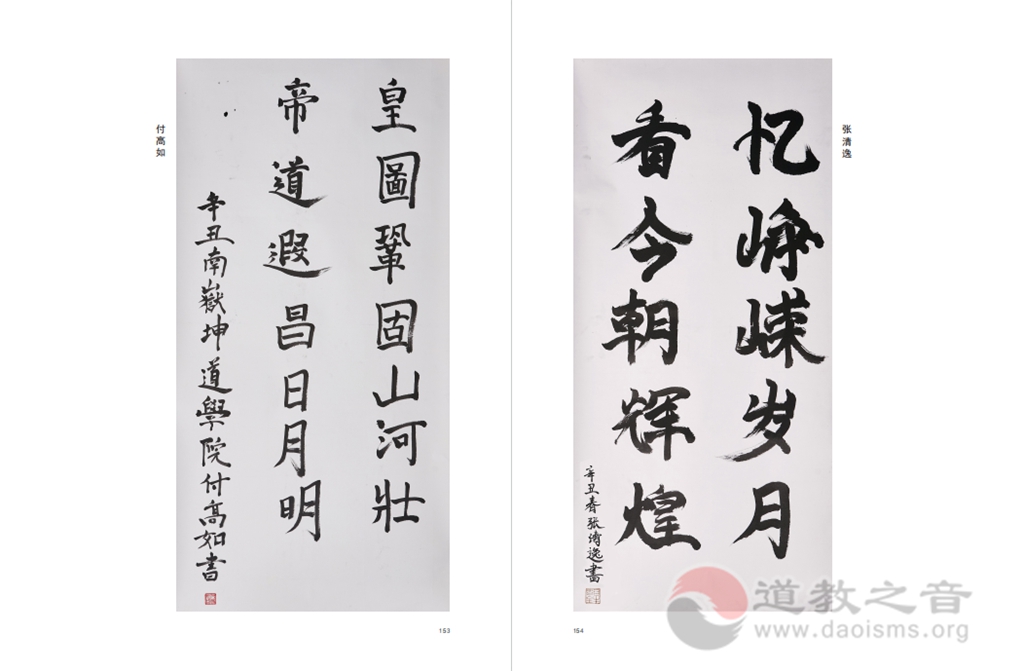 付高如
皇圖鞏固山河壯
帝道遐昌日月明
辛丑南嶽坤道學院付高如書
153
张清逸
忆峥嵘岁月
看今朝辉煌
辛丑春张清逸書
154
道教之音
www.daoisms.org